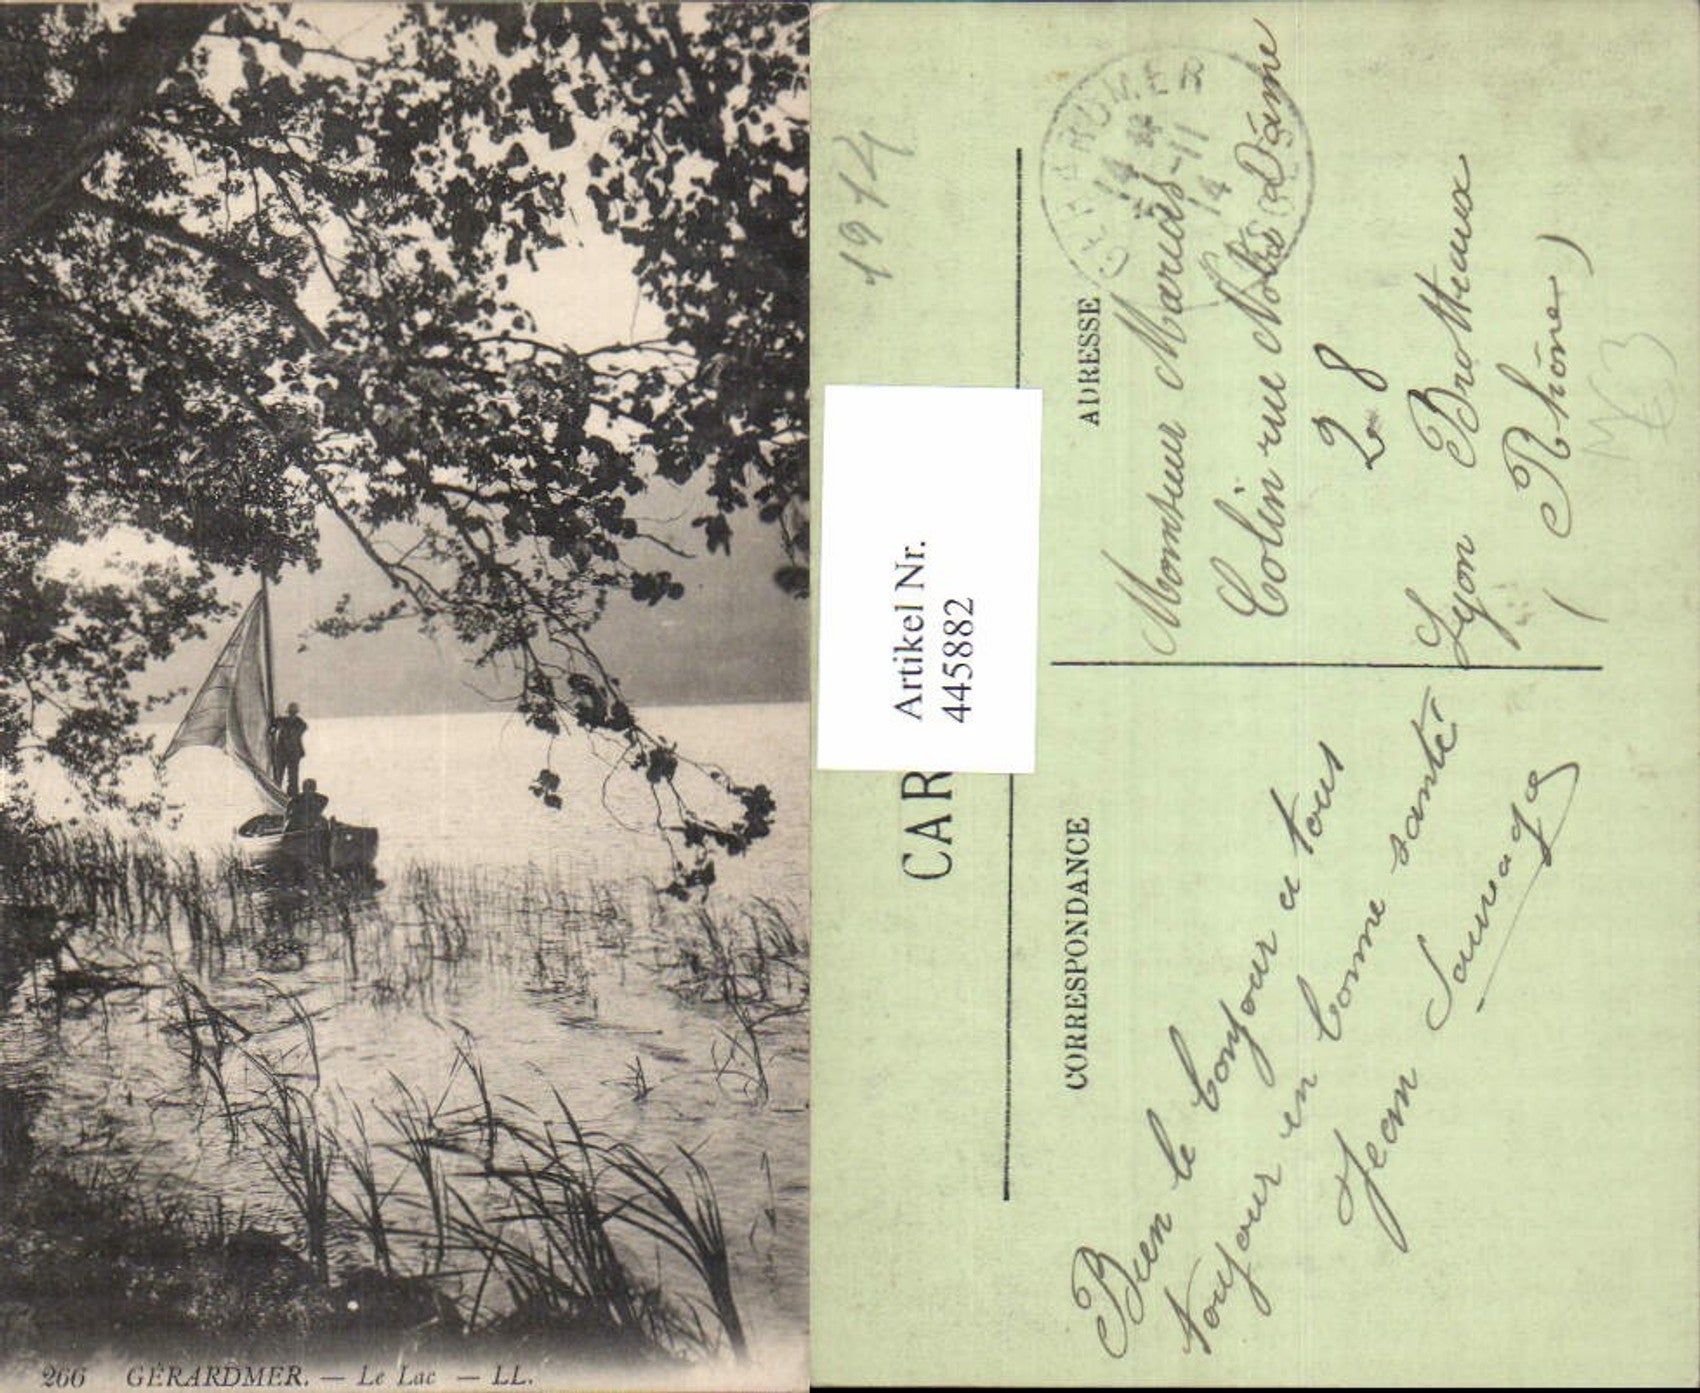 266 GÉRARDMER. — Le Lac — LL.
1914
CAR
Artikel Nr.
445882
CORRESPONDANCE
ADRESSE
GERARDMER
14
5-11
14
VOSGES
Bien le bonjour a tous
toujour en bonne santé
Jean Sauvage
Monsieur Marius
Colin rue Notre Dáme
28
Lyon Brotteaux
( Rhône )